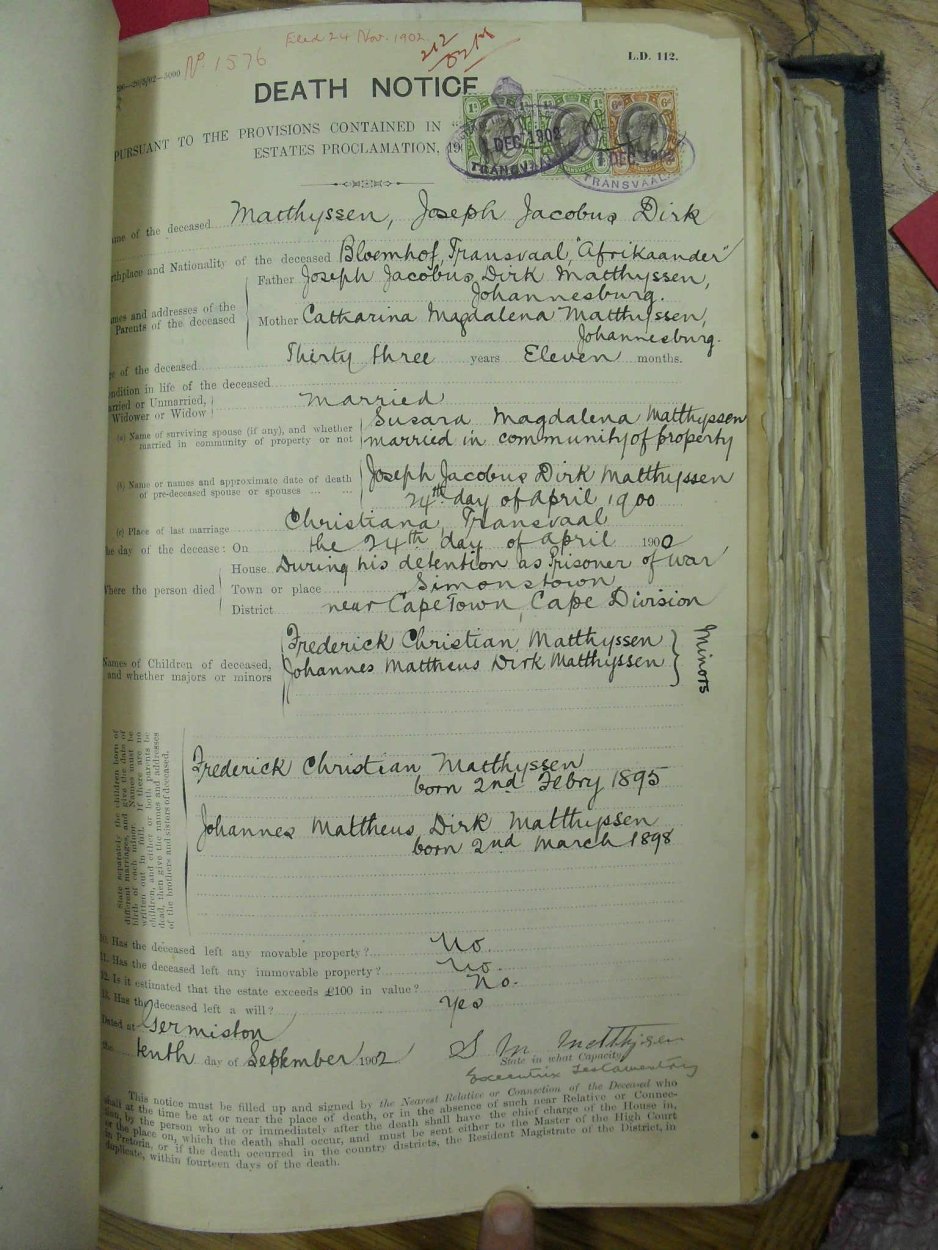 Filed 24 Nov. 1902.
No. 1576
L.D. 112.
DEATH NOTICE
PURSUANT TO THE PROVISIONS CONTAINED IN
ESTATES PROCLAMATION, 190
1 DEC 1902
TRANSVAAL
DEC 1902
TRANSVAAL
of the deceased Matthyssen, Joseph Jacobus Dirk
and Nationality of the deceased Bloemhof, Transvaal, "Afrikaander"
Father Joseph Jacobus Dirk Matthyssen,
Johannesburg.
and addresses of the
Parents of the deceased
Mother Catharina Magdalena Matthyssen,
Johannesburg.
of the deceased Thirty three years Eleven months.
in life of the deceased
or Unmarried,
Widower or Widow
Married
(a) Name of surviving spouse (if any), and whether
married in community of property or not
Susara Magdalena Matthyssen
married in community of property
(b) Name or names and approximate date of death
of pre-deceased spouse or spouses ... ...
Joseph Jacobus Dirk Matthyssen
24th day of April 1900
(c) Place of last marriage Christiana, Transvaal
day of the decease: On the 24th day of April 1900
Where the person died
House During his detention as Prisoner of war
Town or place Simonstown
District near Cape Town, Cape Division
Names of Children of deceased,
and whether majors or minors
Frederick Christian Matthyssen
Johannes Mattheus Dirk Matthyssen
Minors
State separately the children born of
different marriages, and give the date of
birth of each minor. Names must be
written out in full. If there are no
children, and either or both parents be
dead, then give the names and addresses
of the brothers and sisters of deceased.
Frederick Christian Matthyssen
born 2nd Febry 1895
Johannes Mattheus Dirk Matthyssen
born 2nd March 1898
10. Has the deceased left any movable property? No.
11. Has the deceased left any immovable property? No.
12. Is it estimated that the estate exceeds £100 in value? No.
13. Has the deceased left a will? Yes
Dated at Germiston
the tenth day of September 1902
S M Matthysen
State in what Capacity
Executrix Testamentary
This notice must be filled up and signed by the Nearest Relative or Connection of the Deceased who
shall at the time be at or near the place of death, or in the absence of such near Relative or Connec-
tion, by the person who at or immediately after the death shall have the chief charge of the House in,
or the place on, which the death shall occur, and must be sent either to the Master of the High Court
in Pretoria, or if the death occurred in the country districts, the Resident Magistrate of the District, in
duplicate, within fourteen days of the death.